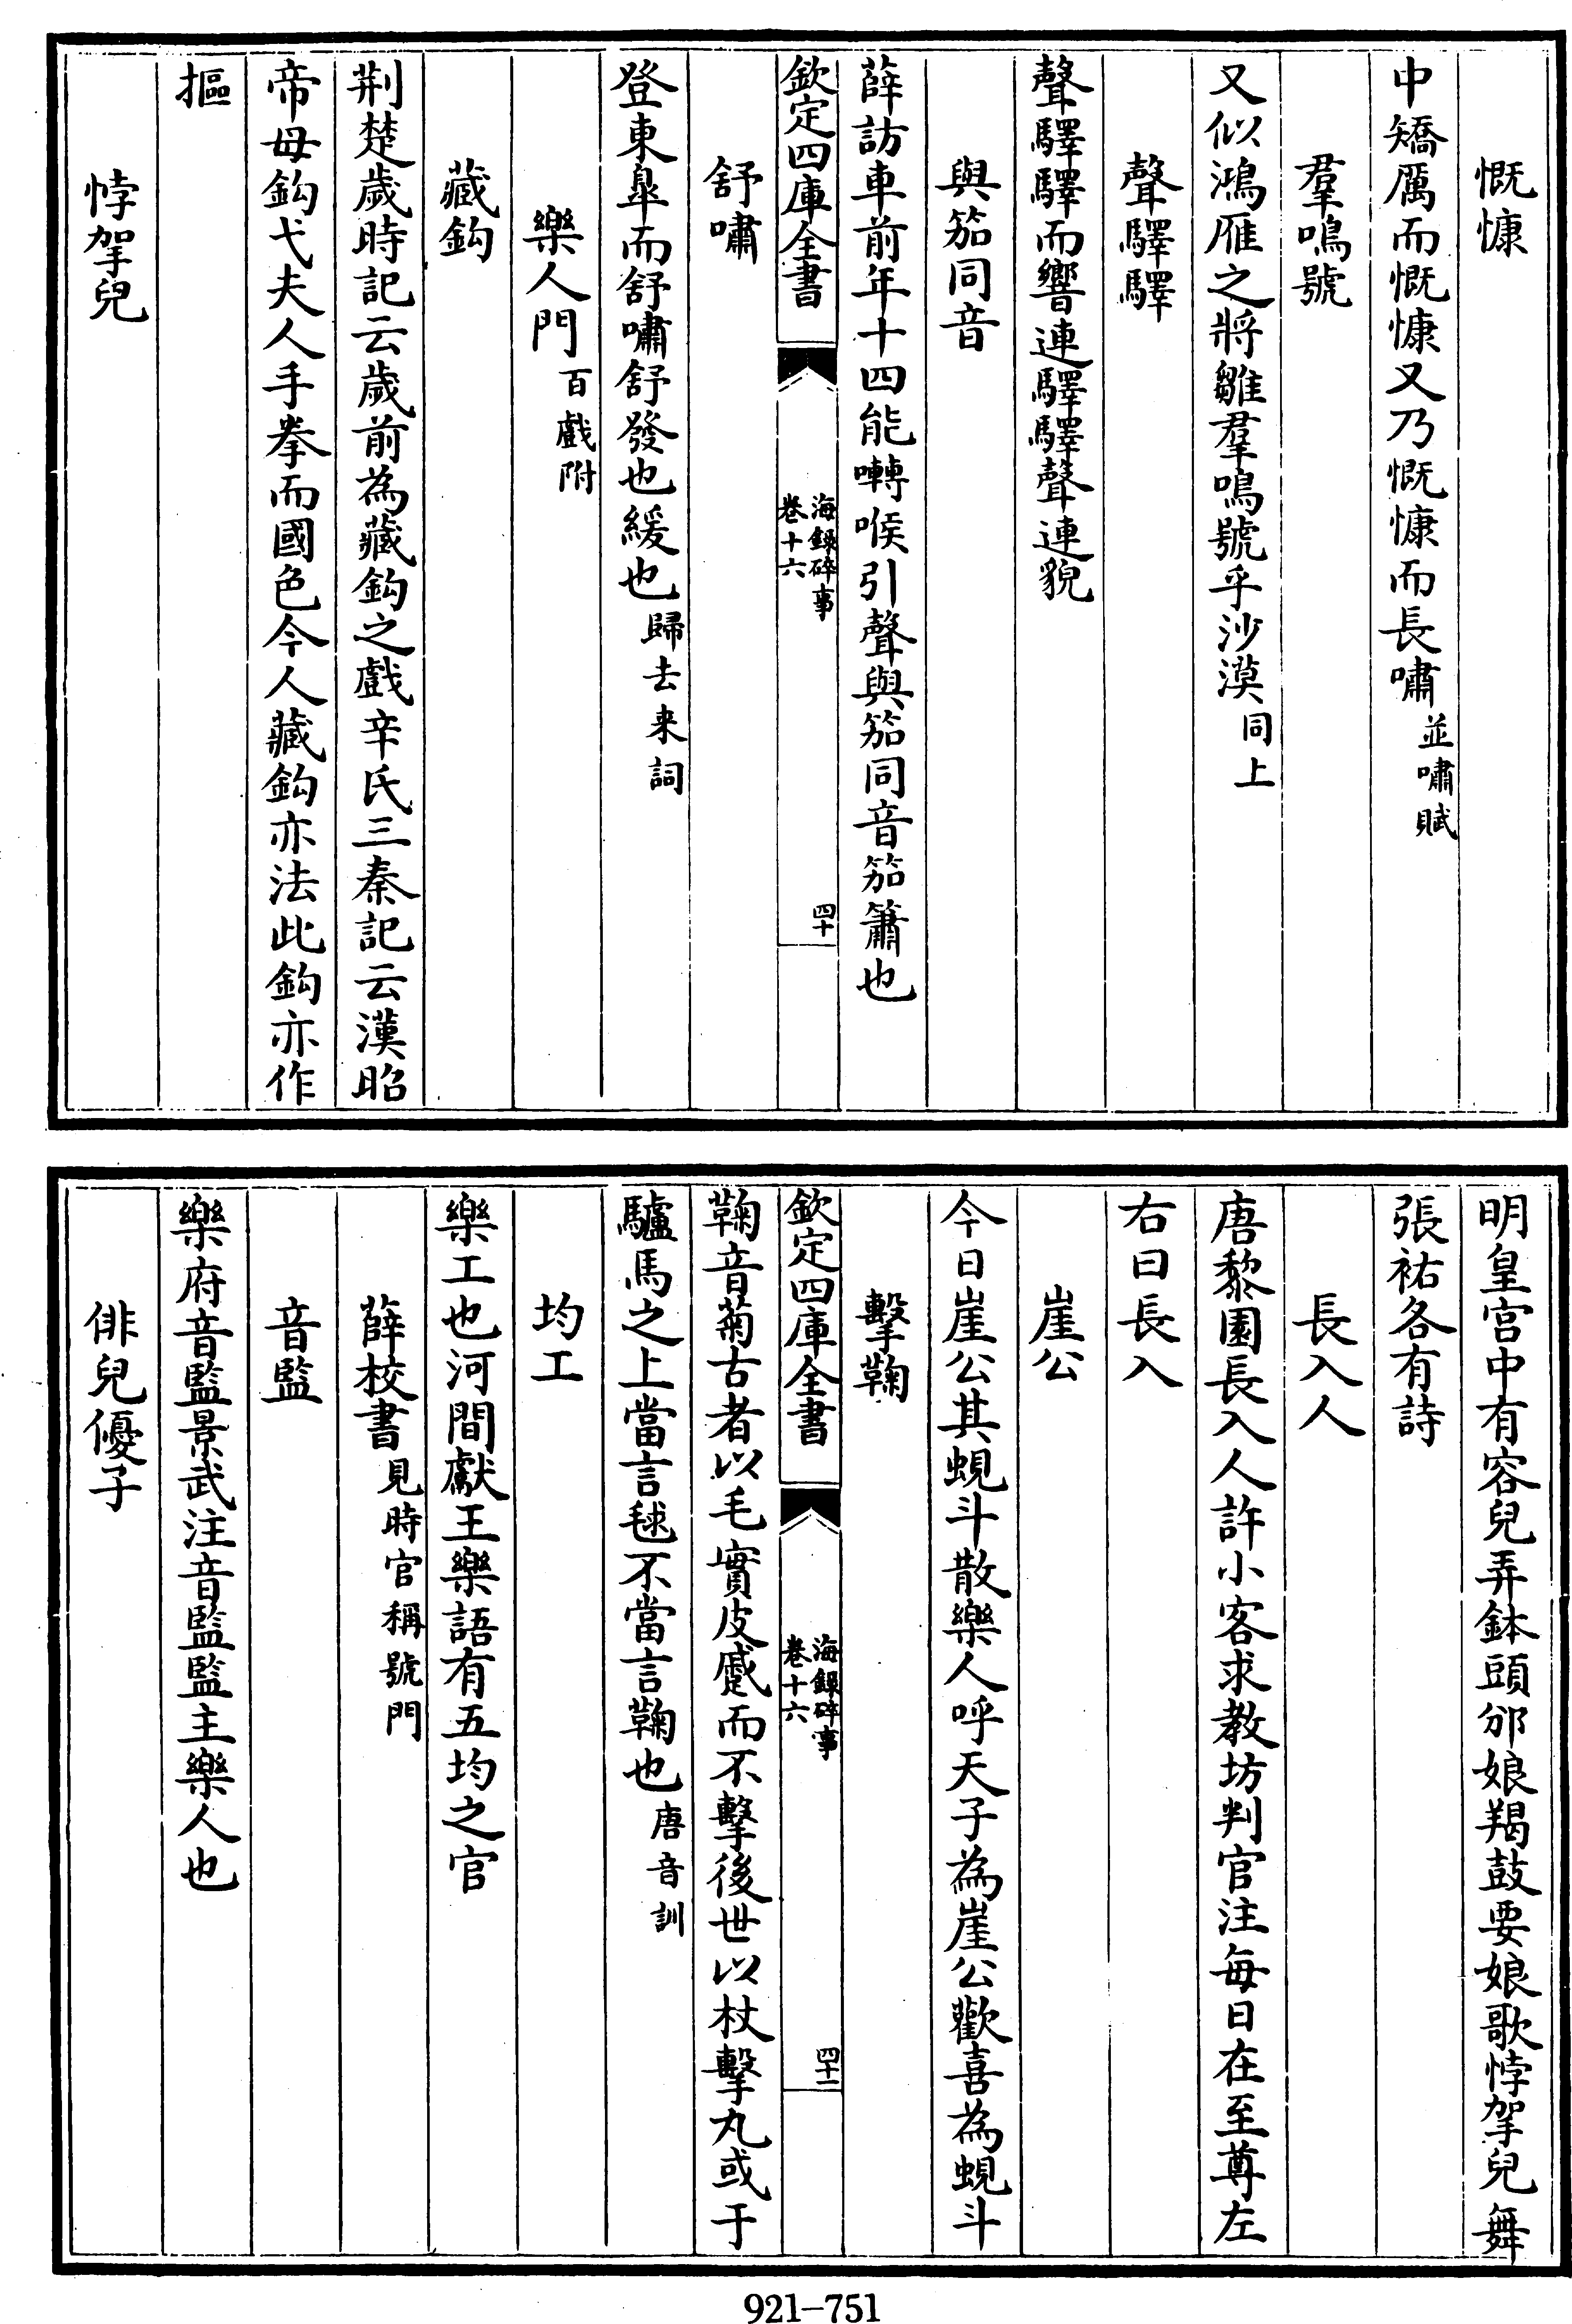 慨慷
中矯厲而慨慷又乃慨慷而長嘯並嘯賦
羣鳴號
又似鴻雁之將雛羣鳴號乎沙漠同上
聲驛驛
聲驛驛而響連驛驛聲連貌
與笳同音
薛訪車前年十四能囀喉引聲與笳同音笳簫也
欽定四庫全書
海錄碎事
卷十六
四十
舒嘯
登東臯而舒嘯舒發也緩也歸去来詞
樂人門百戲附
藏鈎
荆楚歲時記云歲前為藏鈎之戲辛氏三秦記云漢昭
帝母鈎弋夫人手拳而國色今人藏鈎亦法此鈎亦作
摳
悖拏兒
明皇宫中有容兒弄鉢頭邠娘羯鼓要娘歌悖拏兒舞
張祐各有詩
長入人
唐黎園長入人許小客求教坊判官注每日在至尊左
右曰長入
崖公
今日崖公其蜆斗散樂人呼天子為崖公歡喜為蜆斗
擊鞠
欽定四庫全書
海錄碎事
卷十六
四十一
鞠音菊古者以毛實皮蹙而不擊後世以杖擊丸或于
驢馬之上當言毬不當言鞠也唐音訓
均工
樂工也河間獻王樂語有五均之官
薛校書見時官稱號門
音監
樂府音監景武注音監監主樂人也
俳兒優子
921-751